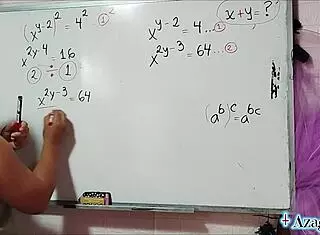 (x^{y-2})^2 = 4^2 ①²
x^{2y-4} = 16
② ÷ ①
x^{2y-3} = 64
x^{y-2} = 4 ...①
x^{2y-3} = 64 ...②
x+y=?
(a^b)^c = a^{bc}